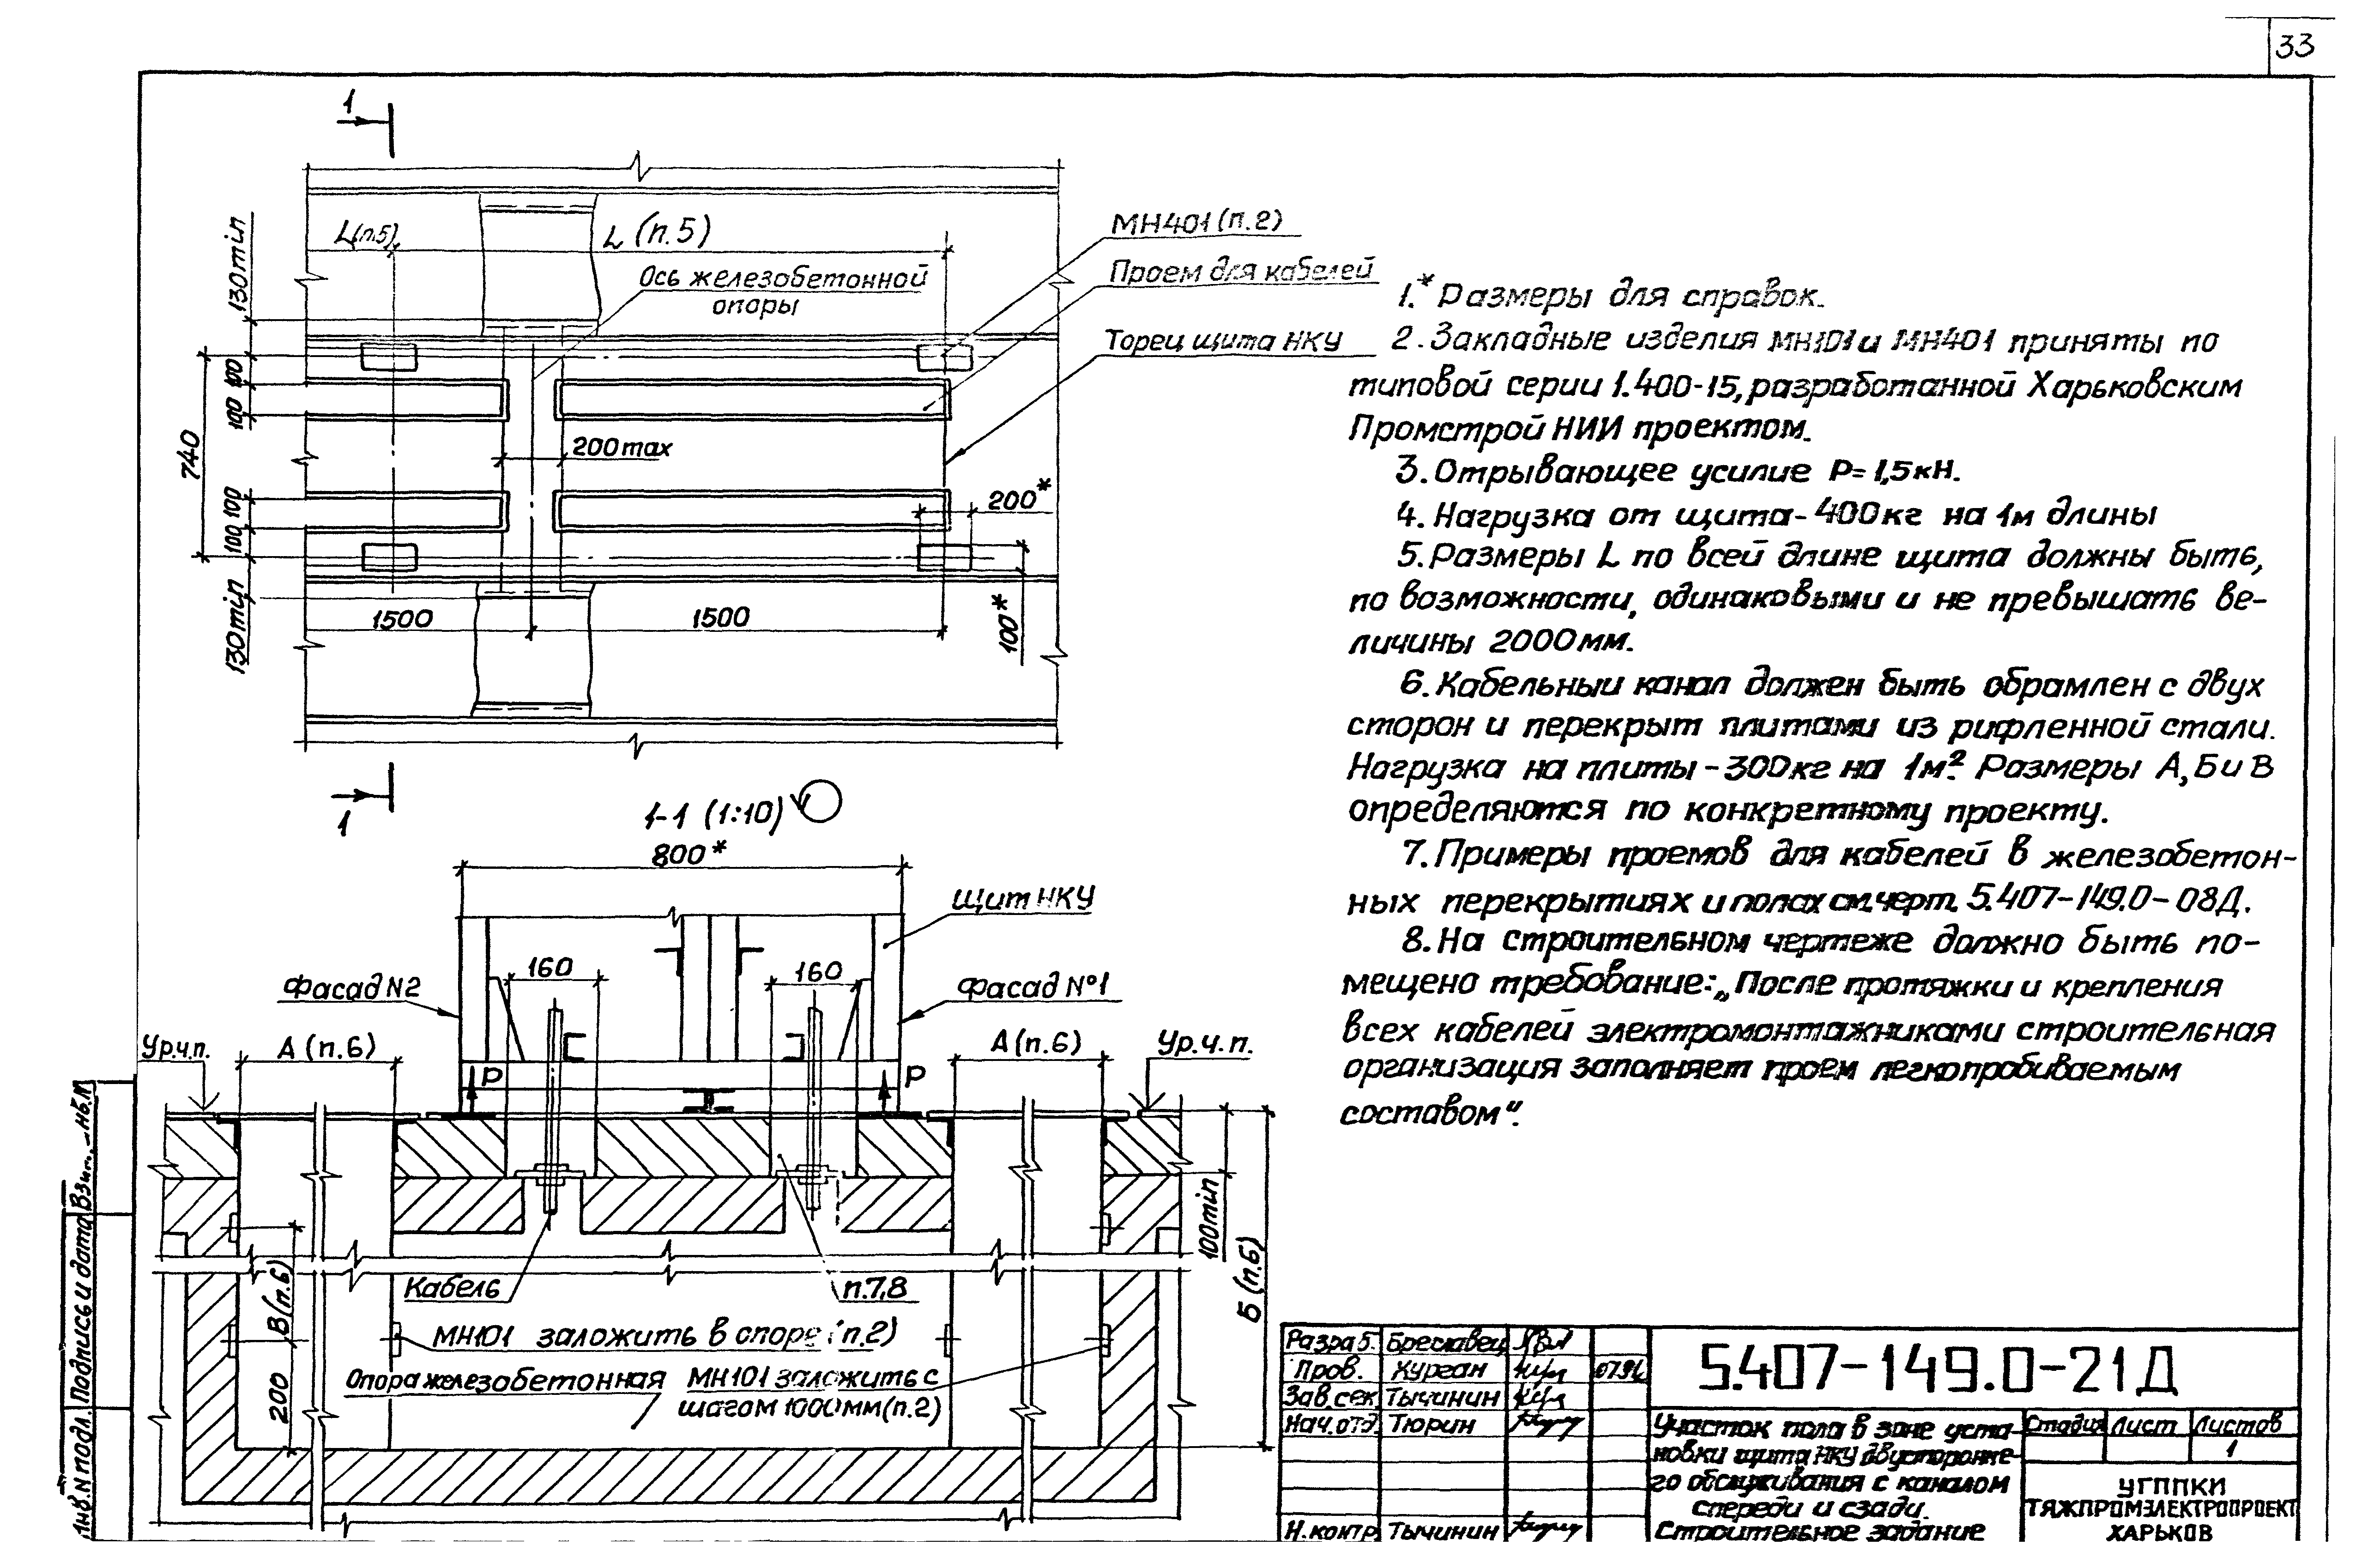 33
1
L(п.5)
L (п.5)
130min
МН401 (п.2)
Ось железобетонной
опоры
Проем для кабелей
Торец щита НКУ
100
100
740
200max
100
100
200*
130min
1500
1500
100*
1
1-1 (1:10)
800*
Щит НКУ
160
160
Фасад N2
Фасад N°1
Ур.ч.п.
А (п.6)
А (п.6)
Ур.ч.п.
Р
Р
100min
Б (п.6)
В (п.6)
200
Кабель
п.7,8
МН101 заложить в опоре (п.2)
Опора железобетонная
МН101 заложить с
шагом 1000мм (п.2)
1.* Размеры для справок.
2. Закладные изделия МН101 и МН401 приняты по
типовой серии 1.400-15, разработанной Харьковским
Промстрой НИИ проектом.
3. Отрывающее усилие Р= 1,5кН.
4. Нагрузка от щита - 400кг на 1м длины
5. Размеры L по всей длине щита должны быть,
по возможности, одинаковыми и не превышать ве-
личины 2000мм.
6. Кабельный канал должен быть обрамлен с двух
сторон и перекрыт плитами из рифленной стали.
Нагрузка на плиты - 300кг на 1м². Размеры А, Б и В
определяются по конкретному проекту.
7. Примеры проемов для кабелей в железобетон-
ных перекрытиях и полах см. черт. 5.407-149.0-08Д.
8. На строительном чертеже должно быть по-
мещено требование: „После протяжки и крепления
всех кабелей электромонтажниками строительная
организация заполняет проем легкопробиваемым
составом“.
Инв.N подл.
Подпись и дата
Взам. инв.N
Разраб. Бреславец
Пров. Курган
Зав.сек. Тычинин
Нач.отд. Тюрин
Н.контр. Тычинин
5.407-149.0-21Д
Участок пола в зоне уста-
новки щита НКУ двусторонне-
го обслуживания с каналом
спереди и сзади.
Строительное задание
Стадия Лист Листов
1
УГППКИ
ТЯЖПРОМЭЛЕКТРОПРОЕКТ
ХАРЬКОВ